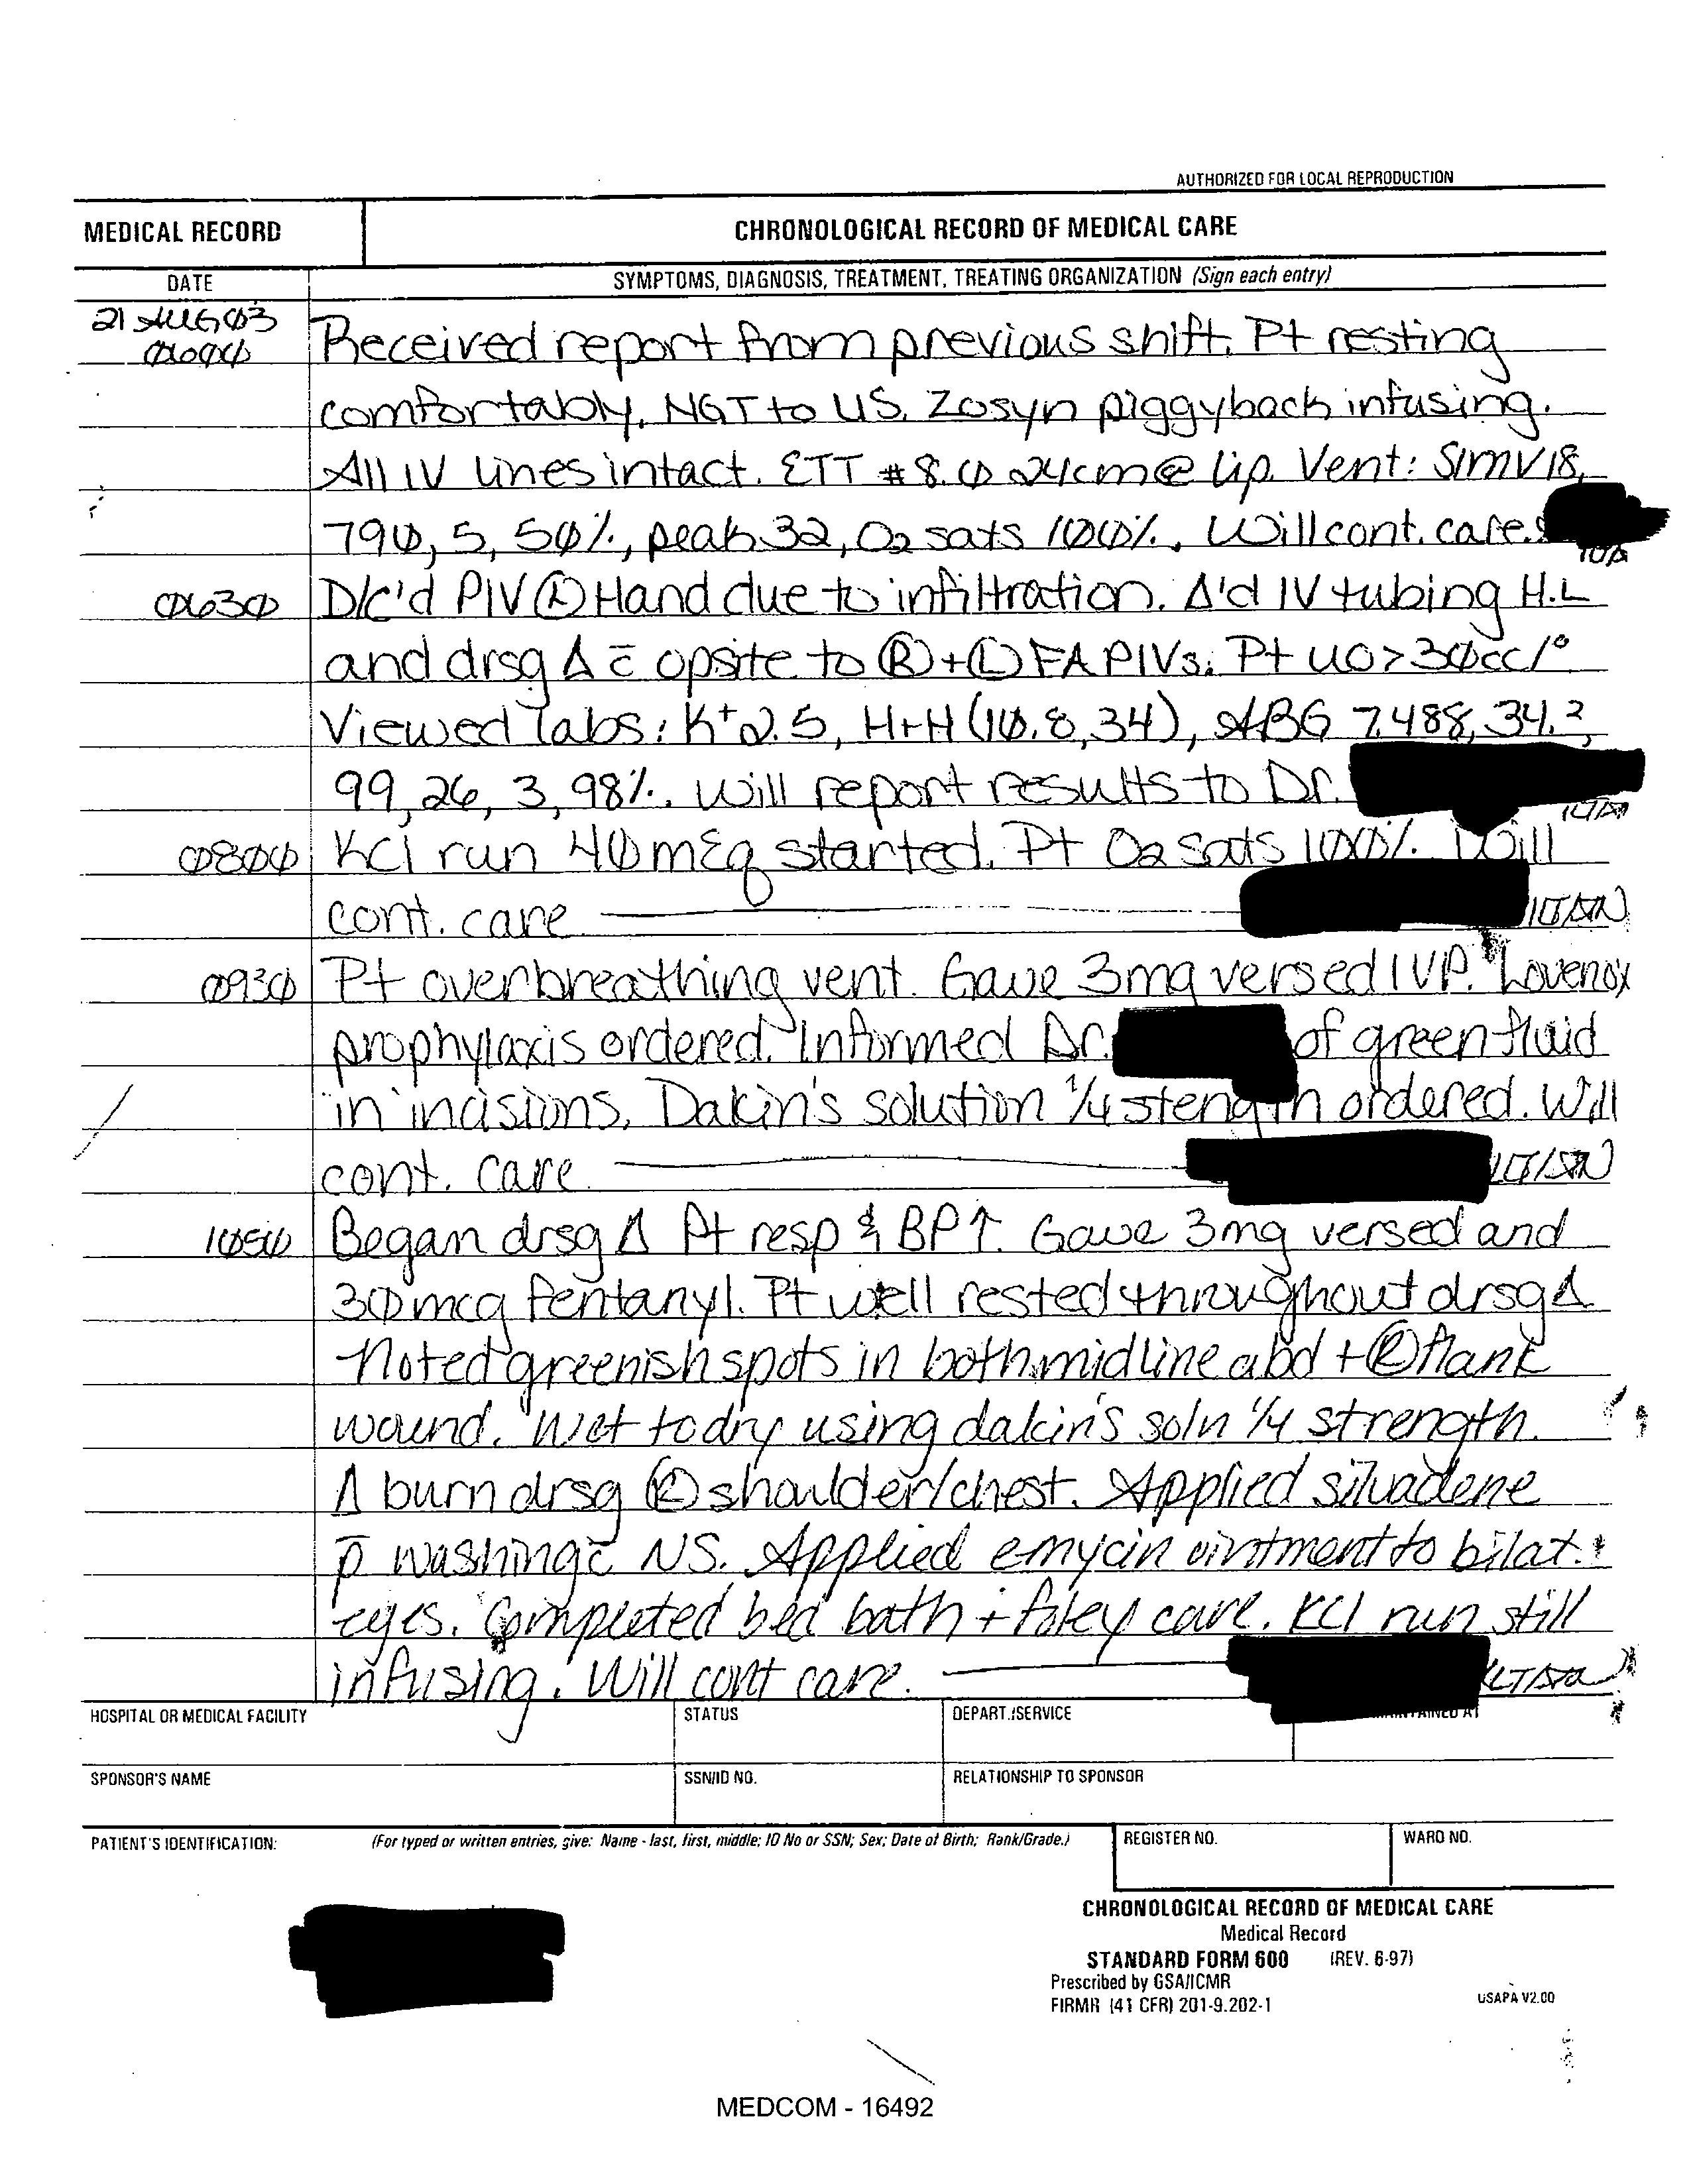 AUTHORIZED FOR LOCAL REPRODUCTION
MEDICAL RECORD
CHRONOLOGICAL RECORD OF MEDICAL CARE
DATE
SYMPTOMS, DIAGNOSIS, TREATMENT, TREATING ORGANIZATION (Sign each entry)
21 AUG 03
Received report from previous shift. Pt resting
comfortably. NGT to LIS. Zosyn piggyback infusing.
All IV lines intact. ETT #8.0 24cm @ lip. Vent: SIMV 18,
790, 5, 50%, peak 32, O2 sats 100%. Will cont. care.
0630 D/C'd PIV Ⓛ Hand due to infiltration. Δ'd IV tubing H.L
and drsg Δ c̄ opsite to Ⓡ + Ⓛ FA PIVs. Pt UO > 30cc/°
Viewed labs: K+ 2.5, H+H (10.8, 34), ABG 7.488, 34.2,
99, 26, 3, 98%. Will report results to Dr.
1LT/AN
0800 KCl run 40 mEq started. Pt O2 sats 100%. Will
cont. care 1LT/AN
0930 Pt overbreathing vent. Gave 3mg versed IVP. Lovenox
prophylaxis ordered. Informed Dr. of green fluid
in incisions. Dakin's solution 1/4 stength ordered. Will
cont. care 1LT/AN
1050 Began drsg Δ Pt resp & BP↑. Gave 3mg versed and
30mcg fentanyl. Pt well rested throughout drsg Δ
Noted greenish spots in both midline abd + Ⓡ flank
wound. Wet to dry using dakin's soln 1/4 strength.
Δ burn drsg Ⓡ shoulder/chest. Applied silvadene
p̄ washing c̄ NS. Applied emycin ointment to bilat.
eyes. Completed bed bath + foley care. KCl run still
infusing. Will cont care. 1LT/AN
HOSPITAL OR MEDICAL FACILITY
STATUS
DEPART./SERVICE
SPONSOR'S NAME
SSN/ID NO.
RELATIONSHIP TO SPONSOR
PATIENT'S IDENTIFICATION:
(For typed or written entries, give: Name - last, first, middle; ID No or SSN; Sex; Date of Birth; Rank/Grade.)
REGISTER NO.
WARD NO.
CHRONOLOGICAL RECORD OF MEDICAL CARE
Medical Record
STANDARD FORM 600 (REV. 6-97)
Prescribed by GSA/ICMR
FIRMR (41 CFR) 201-9.202-1
USAPA V2.00
MEDCOM - 16492